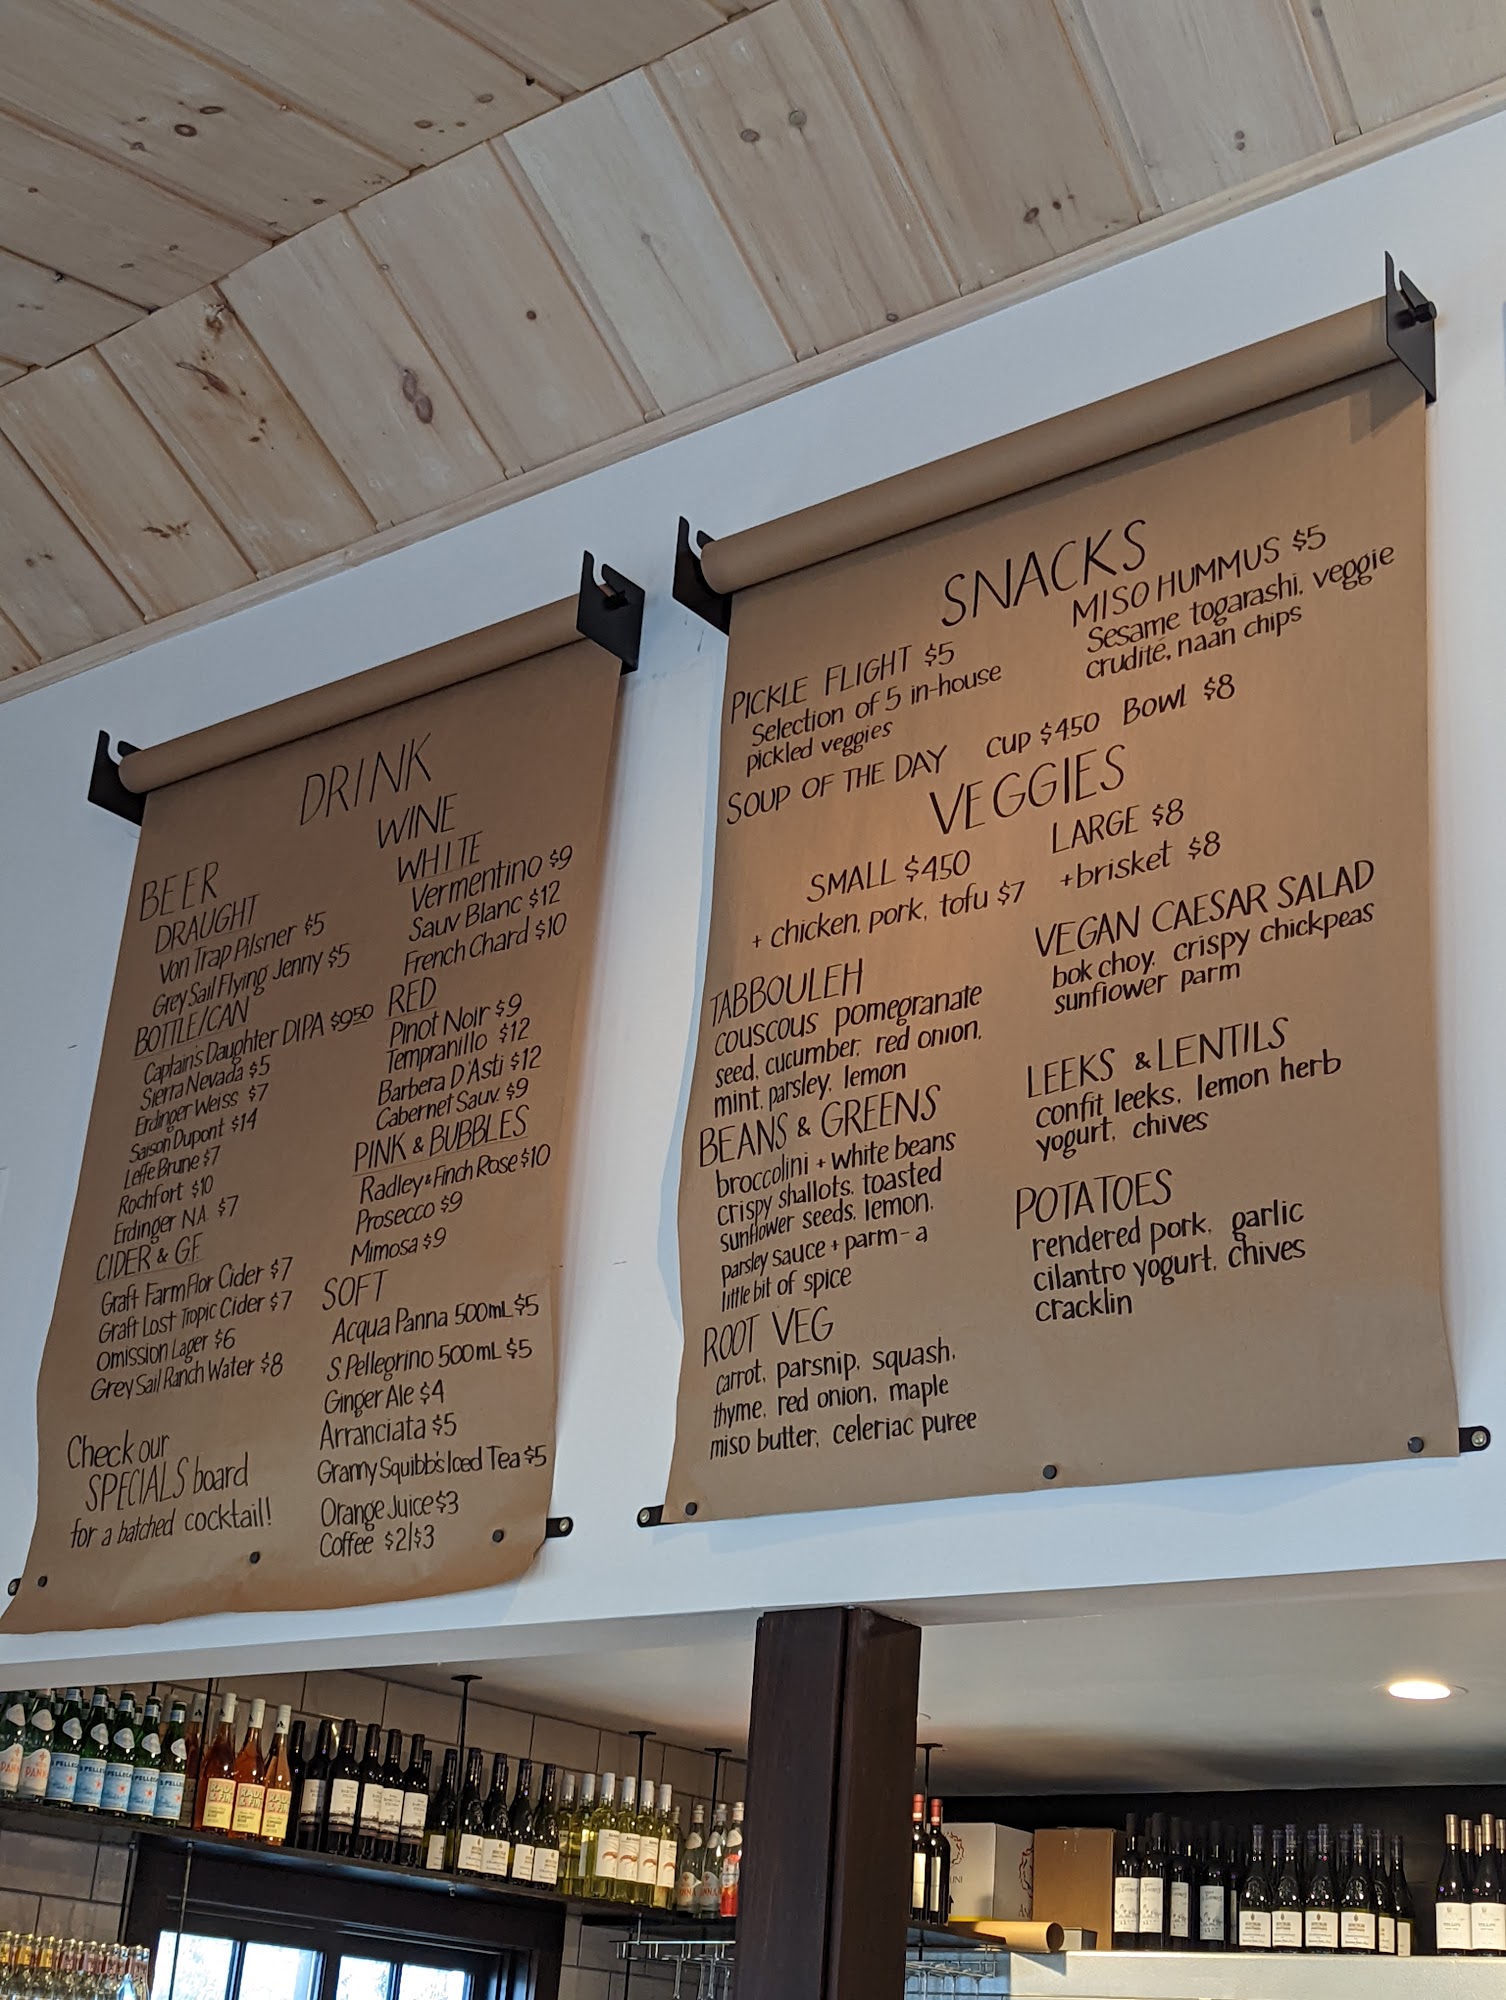 DRINK
BEER
DRAUGHT
Von Trap Pilsner $5
Grey Sail Flying Jenny $5
BOTTLE/CAN
Captain's Daughter DIPA $950
Sierra Nevada $5
Erdinger Weiss $7
Saison Dupont $14
Leffe Brune $7
Rochfort $10
Erdinger N.A. $7
CIDER & G.F.
Graft Farm Flor Cider $7
Graft Lost Tropic Cider $7
Omission Lager $6
Grey Sail Ranch Water $8
Check our
SPECIALS board
for a batched cocktail!
WINE
WHITE
Vermentino $9
Sauv Blanc $12
French Chard $10
RED
Pinot Noir $9
Tempranillo $12
Barbera D'Asti $12
Cabernet Sauv. $9
PINK & BUBBLES
Radley & Finch Rose $10
Prosecco $9
Mimosa $9
SOFT
Acqua Panna 500mL $5
S. Pellegrino 500mL $5
Ginger Ale $4
Arranciata $5
Granny Squibb's Iced Tea $5
Orange Juice $3
Coffee $2|$3
SNACKS
PICKLE FLIGHT $5
Selection of 5 in-house
pickled veggies
MISO HUMMUS $5
Sesame togarashi, veggie
crudité, naan chips
SOUP OF THE DAY Cup $4.50 Bowl $8
VEGGIES
SMALL $4.50
+ chicken, pork, tofu $7
LARGE $8
+brisket $8
TABBOULEH
couscous pomegranate
seed, cucumber, red onion,
mint, parsley, lemon
BEANS & GREENS
broccolini + white beans
crispy shallots, toasted
sunflower seeds, lemon,
parsley sauce + parm - a
little bit of spice
ROOT VEG
carrot, parsnip, squash,
thyme, red onion, maple
miso butter, celeriac puree
VEGAN CAESAR SALAD
bok choy, crispy chickpeas
sunflower parm
LEEKS & LENTILS
confit leeks, lemon herb
yogurt, chives
POTATOES
rendered pork, garlic
cilantro yogurt, chives
cracklin